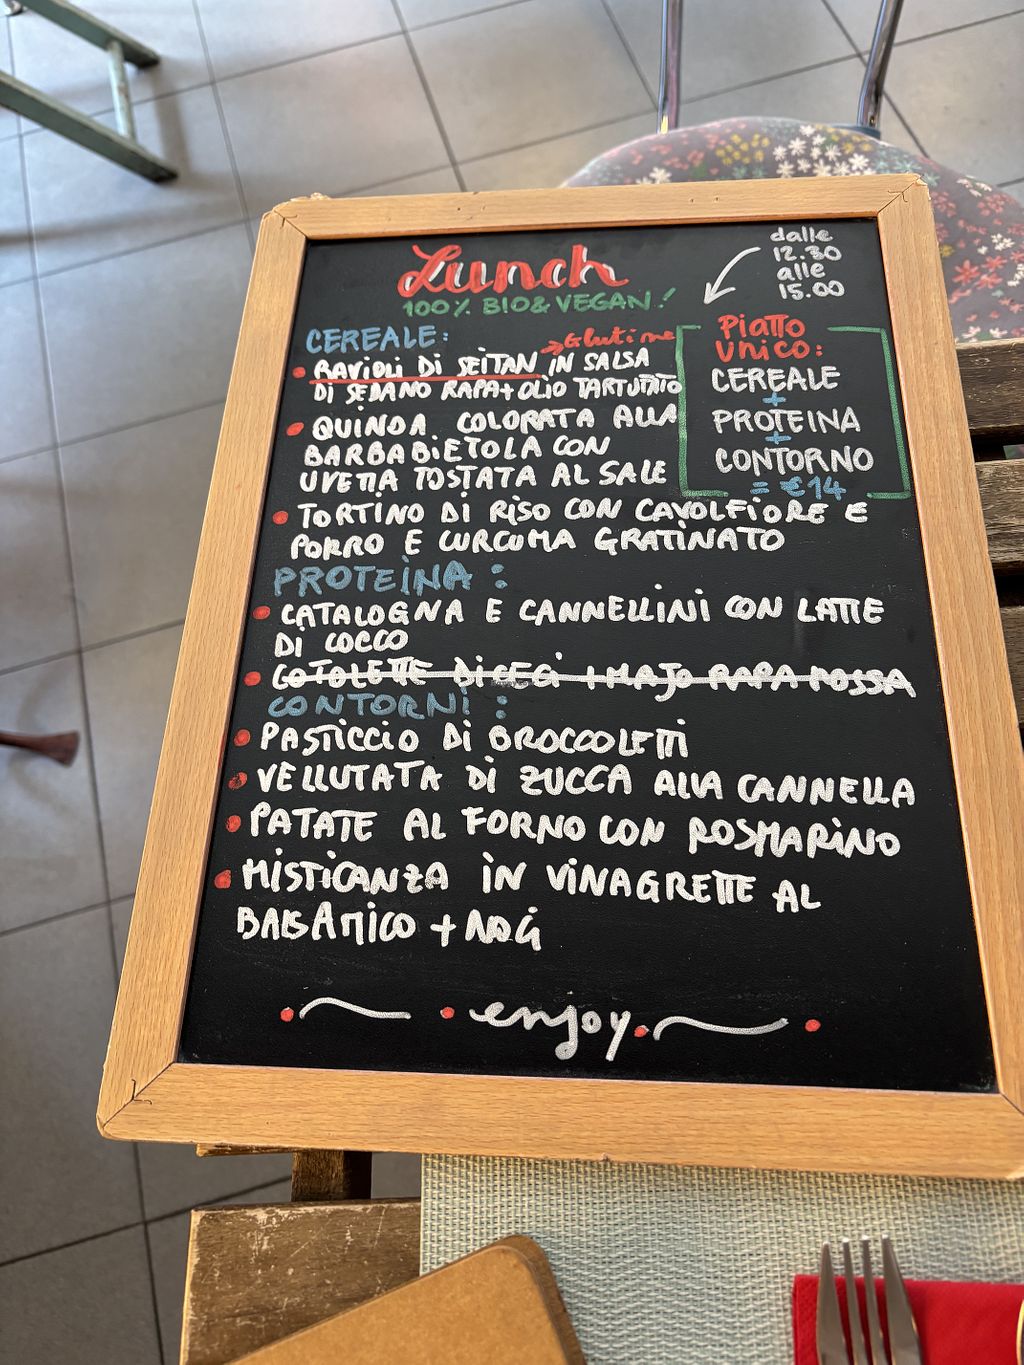 Lunch
100% BIO & VEGAN!
dalle
12.30
alle
15.00
CEREALE:
→ Glutine
RAVIOLI DI SEITAN IN SALSA
DI SEDANO RAPA + OLIO TARTUFATO
QUINOA COLORATA ALLA
BARBABIETOLA CON
UVETTA TOSTATA AL SALE
TORTINO DI RISO CON CAVOLFIORE E
PORRO E CURCUMA GRATINATO
Piatto
Unico:
CEREALE
+
PROTEINA
+
CONTORNO
= €14
PROTEINA:
CATALOGNA E CANNELLINI CON LATTE
DI COCCO
COTOLETTE DI CECI + MAJO RAPA ROSSA
CONTORNI:
PASTICCIO DI BROCCOLETTI
VELLUTATA DI ZUCCA ALLA CANNELLA
PATATE AL FORNO CON ROSMARINO
MISTICANZA IN VINAGRETTE AL
BALSAMICO + NOCI
enjoy